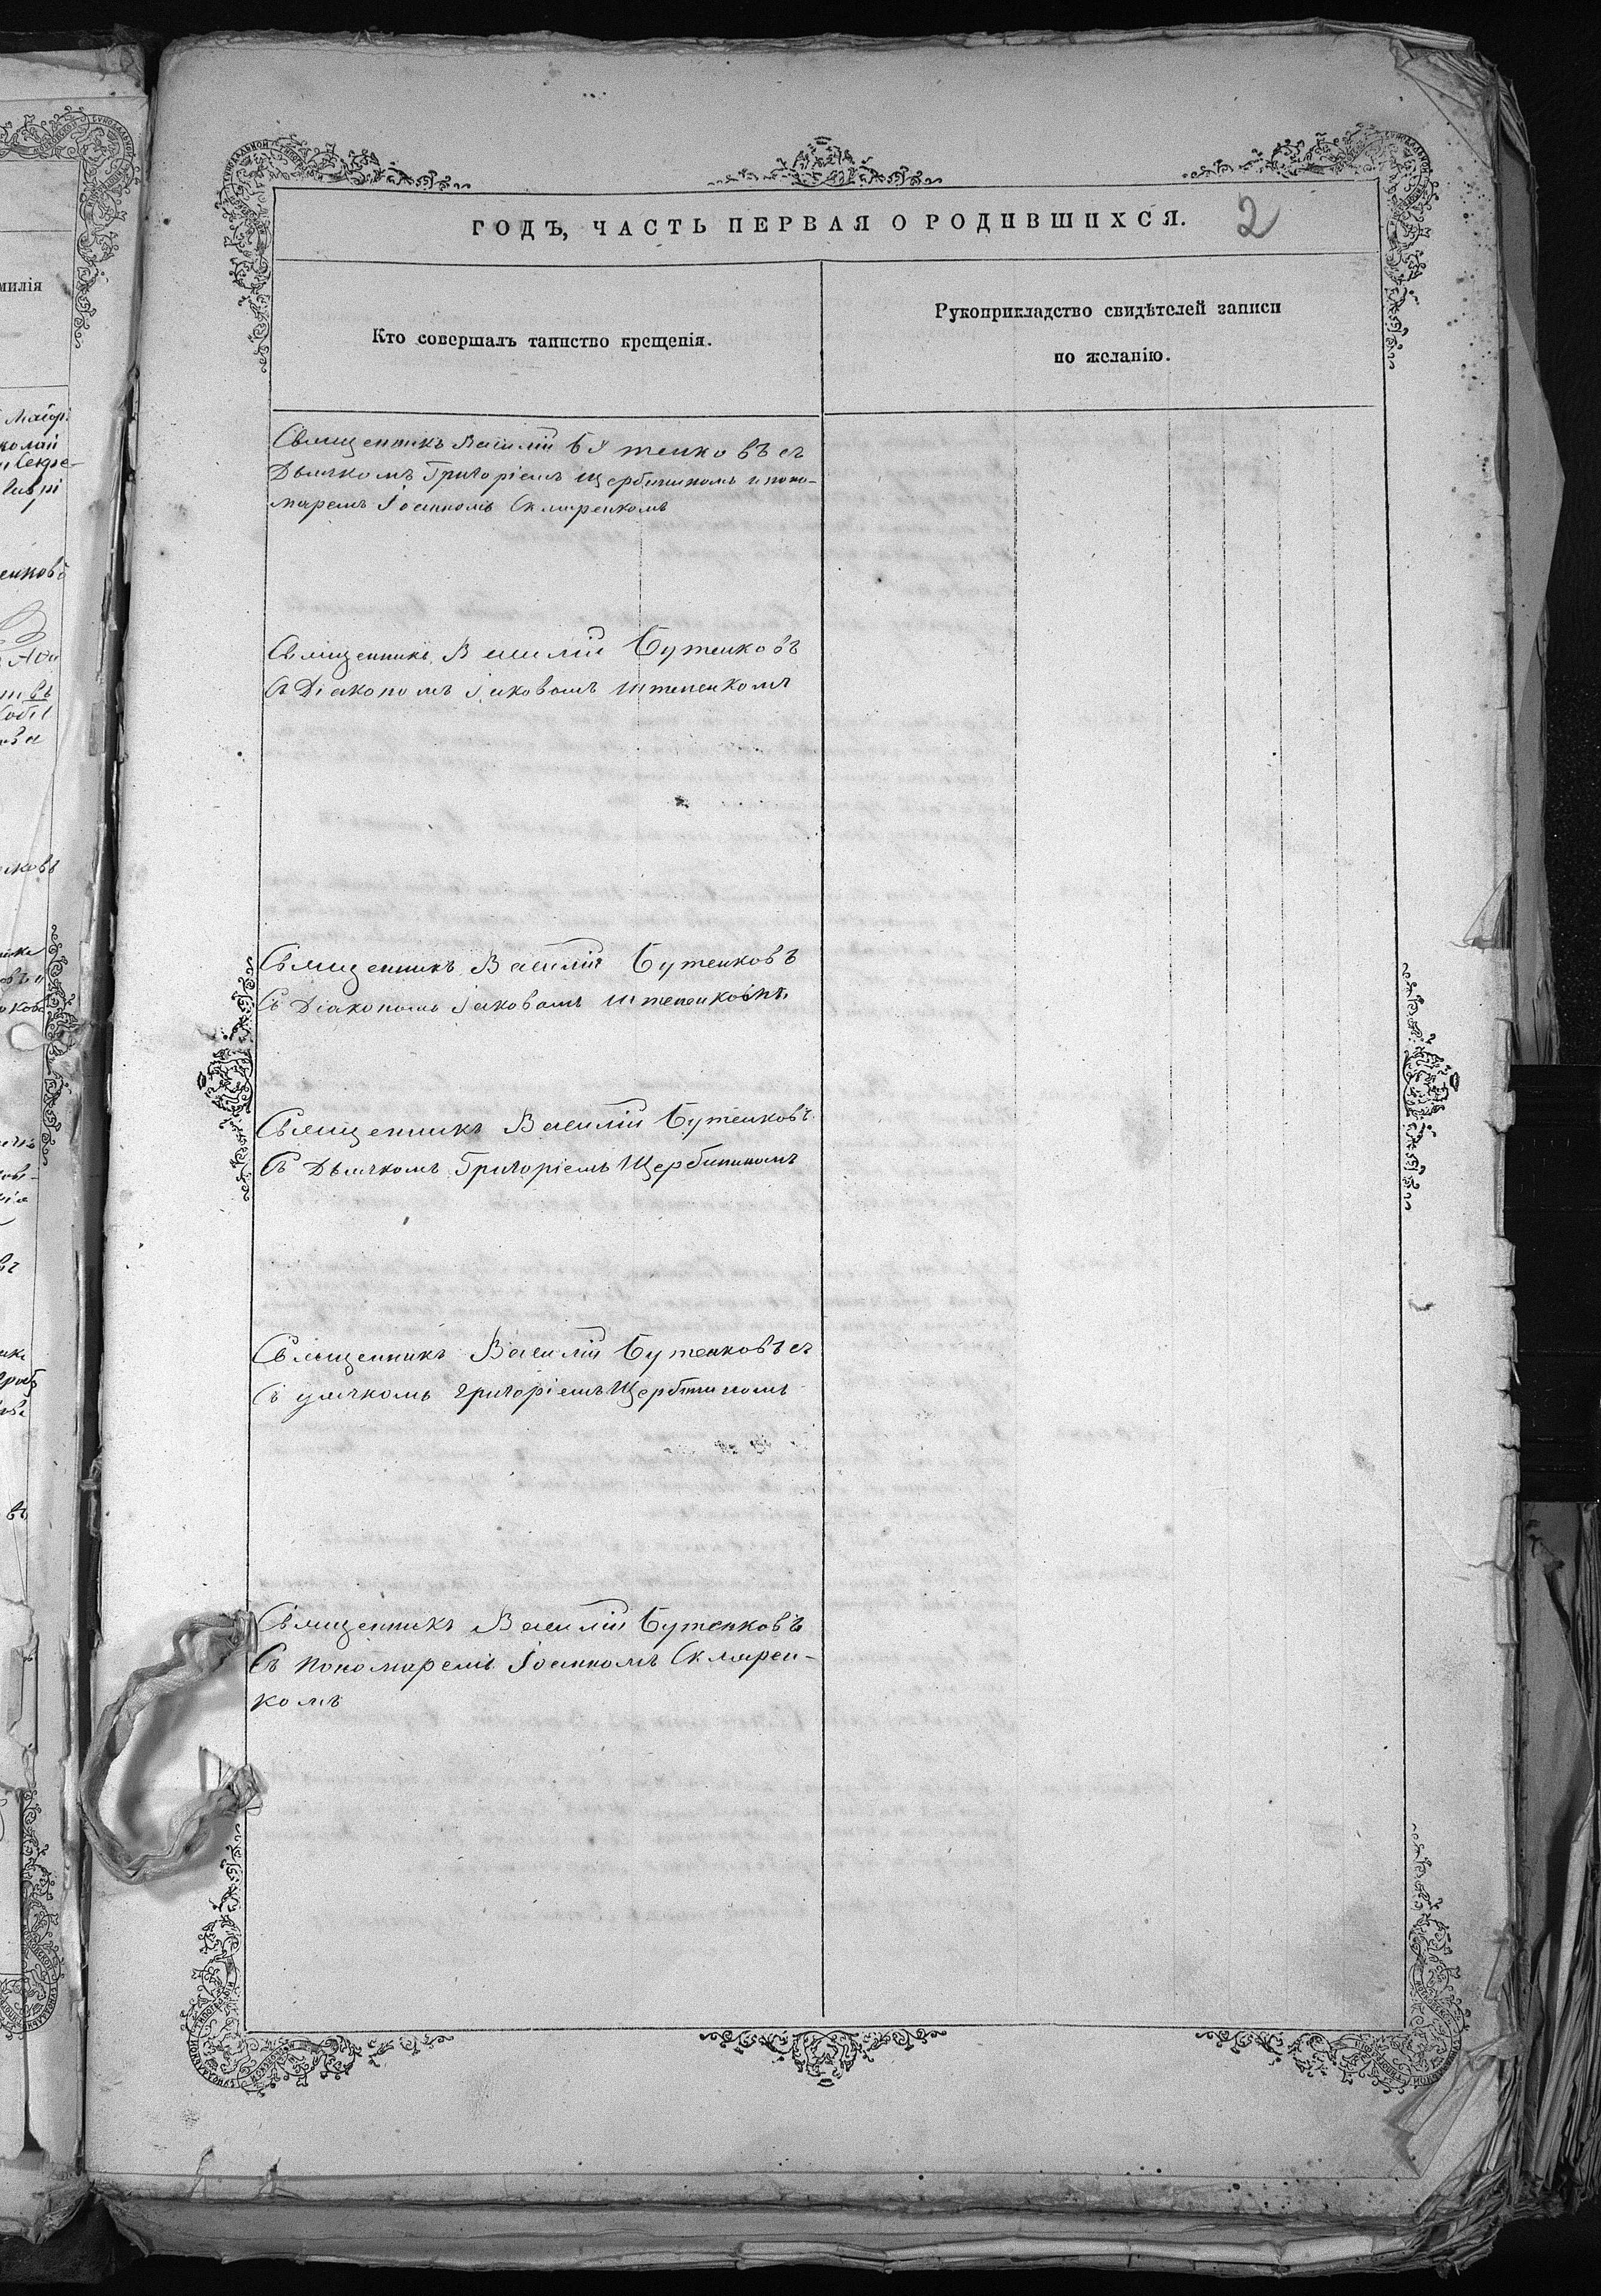 ГОДЪ, ЧАСТЬ ПЕРВАЯ О РОДИВШИХСЯ.
2
Кто совершалъ таинство крещенія.
Рукоприкладство свидѣтелей записи
по желанію.
Священникъ Василій Бутенковъ съ
Дьячкомъ Григоріемъ Щербининомъ и поно-
маремъ Іоанномъ Скляренкомъ
Священникъ Василій Бутенковъ
Съ Діакономъ Іаковомъ Штепенкомъ
Священникъ Василій Бутенковъ
Съ Діакономъ Іаковомъ Штепенкомъ
Священникъ Василій Бутенковъ
Съ Дьячкомъ Григоріемъ Щербининомъ
Священникъ Василій Бутенковъ съ
Съ дьячкомъ Григоріемъ Щербининомъ
Священникъ Василій Бутенковъ
Съ Пономаремъ Іоанномъ Скларен-
комъ
милія